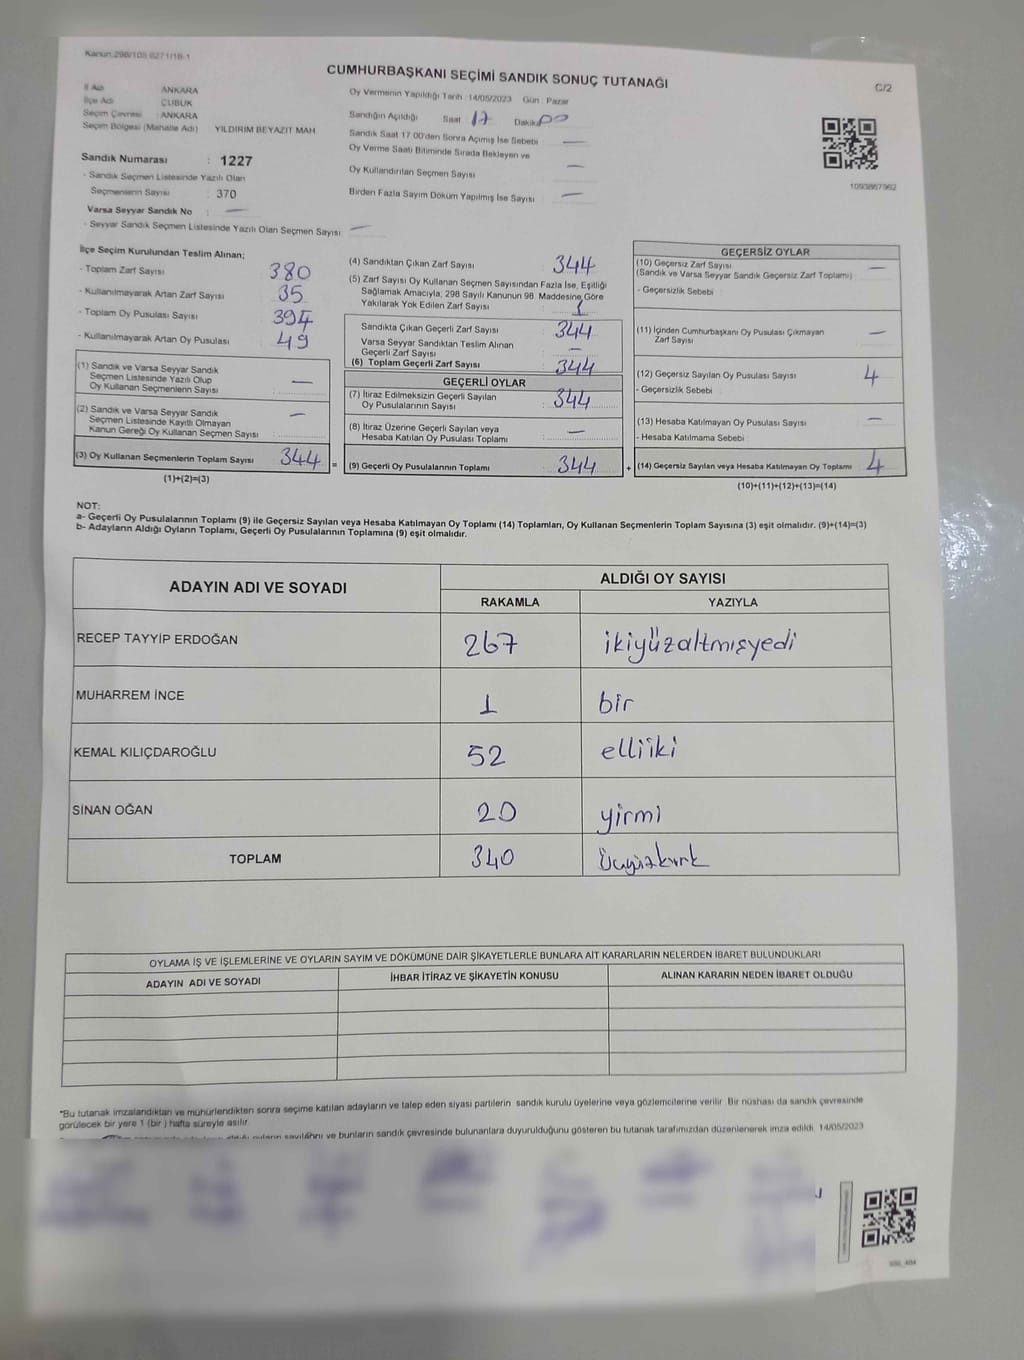 Kanun:298/105 6271/18-1
CUMHURBAŞKANI SEÇİMİ SANDIK SONUÇ TUTANAĞI
C/2
İl Adı ANKARA
İlçe Adı ÇUBUK
Seçim Çevresi : ANKARA
Seçim Bölgesi (Mahalle Adı) YILDIRIM BEYAZIT MAH
Sandık Numarası : 1227
- Sandık Seçmen Listesinde Yazılı Olan
Seçmenlerin Sayısı : 370
Varsa Seyyar Sandık No : —
- Seyyar Sandık Seçmen Listesinde Yazılı Olan Seçmen Sayısı: —
Oy Vermenin Yapıldığı Tarih : 14/05/2023 Gün : Pazar
Sandığın Açıldığı Saat 17 Dakika 00
Sandık Saat 17:00'den Sonra Açımış İse Sebebi : —
Oy Verme Saati Bitiminde Sırada Bekleyen ve
Oy Kullandırılan Seçmen Sayısı —
Birden Fazla Sayım Döküm Yapılmış İse Sayısı : —
1093867962
İlçe Seçim Kurulundan Teslim Alınan;
- Toplam Zarf Sayısı 380
- Kullanılmayarak Artan Zarf Sayısı 35
- Toplam Oy Pusulası Sayısı 394
- Kullanılmayarak Artan Oy Pusulası 49
(1) Sandık ve Varsa Seyyar Sandık
Seçmen Listesinde Yazılı Olup
Oy Kullanan Seçmenlerin Sayısı : —
(2) Sandık ve Varsa Seyyar Sandık
Seçmen Listesinde Kayıtlı Olmayan
Kanun Gereği Oy Kullanan Seçmen Sayısı : —
(3) Oy Kullanan Seçmenlerin Toplam Sayısı 344 =
(1)+(2)=(3)
(4) Sandıktan Çıkan Zarf Sayısı 344
(5) Zarf Sayısı Oy Kullanan Seçmen Sayısından Fazla İse, Eşitliği
Sağlamak Amacıyla, 298 Sayılı Kanunun 98. Maddesine Göre
Yakılarak Yok Edilen Zarf Sayısı : 1
Sandıkta Çıkan Geçerli Zarf Sayısı : 344
Varsa Seyyar Sandıktan Teslim Alınan
Geçerli Zarf Sayısı —
(6) Toplam Geçerli Zarf Sayısı : 344
GEÇERLİ OYLAR
(7) İtiraz Edilmeksizin Geçerli Sayılan
Oy Pusulalarının Sayısı : 344
(8) İtiraz Üzerine Geçerli Sayılan veya
Hesaba Katılan Oy Pusulası Toplamı : —
(9) Geçerli Oy Pusulalarının Toplamı : 344 +
GEÇERSİZ OYLAR
(10) Geçersiz Zarf Sayısı : —
(Sandık ve Varsa Seyyar Sandık Geçersiz Zarf Toplamı)
- Geçersizlik Sebebi :
(11) İçinden Cumhurbaşkanı Oy Pusulası Çıkmayan
Zarf Sayısı : —
(12) Geçersiz Sayılan Oy Pusulası Sayısı : 4
- Geçersizlik Sebebi :
(13) Hesaba Katılmayan Oy Pusulası Sayısı : —
- Hesaba Katılmama Sebebi :
(14) Geçersiz Sayılan veya Hesaba Katılmayan Oy Toplamı : 4
(10)+(11)+(12)+(13)=(14)
NOT:
a- Geçerli Oy Pusulalarının Toplamı (9) ile Geçersiz Sayılan veya Hesaba Katılmayan Oy Toplamı (14) Toplamları, Oy Kullanan Seçmenlerin Toplam Sayısına (3) eşit olmalıdır. (9)+(14)=(3)
b- Adayların Aldığı Oyların Toplamı, Geçerli Oy Pusulalarının Toplamına (9) eşit olmalıdır.
ADAYIN ADI VE SOYADI ALDIĞI OY SAYISI
RAKAMLA YAZIYLA
RECEP TAYYİP ERDOĞAN 267 ikiyüzaltmışyedi
MUHARREM İNCE 1 bir
KEMAL KILIÇDAROĞLU 52 elliiki
SİNAN OĞAN 20 yirmi
TOPLAM 340 Üçyüzkırk
OYLAMA İŞ VE İŞLEMLERİNE VE OYLARIN SAYIM VE DÖKÜMÜNE DAİR ŞİKAYETLERLE BUNLARA AİT KARARLARIN NELERDEN İBARET BULUNDUKLARI
ADAYIN ADI VE SOYADI İHBAR İTİRAZ VE ŞİKAYETİN KONUSU ALINAN KARARIN NEDEN İBARET OLDUĞU
*Bu tutanak imzalandıktan ve mühürlendikten sonra seçime katılan adayların ve talep eden siyasi partilerin sandık kurulu üyelerine veya gözlemcilerine verilir. Bir nüshası da sandık çevresinde
görülecek bir yere 1 (bir) hafta süreyle asılır.
oyların sayıldığını ve bunların sandık çevresinde bulunanlara duyurulduğunu gösteren bu tutanak tarafımızdan düzenlenerek imza edildi. 14/05/2023